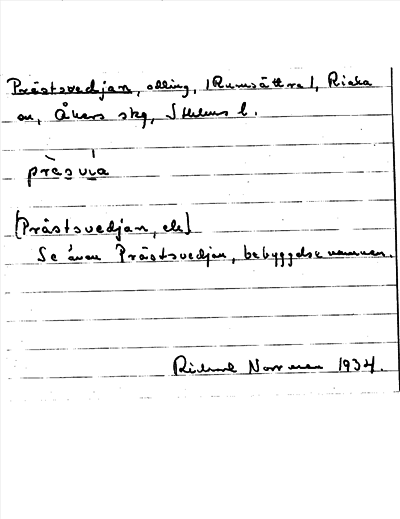 Prästsvedjan, odling, (Rumsättra), Riala
sn, Åkers skg, Sthlms l.
prèsvìa
[Prästsvedjan, ek]
Se även Prästsvedjan, bebyggelsenamnen.
Rickard Norrman 1934.